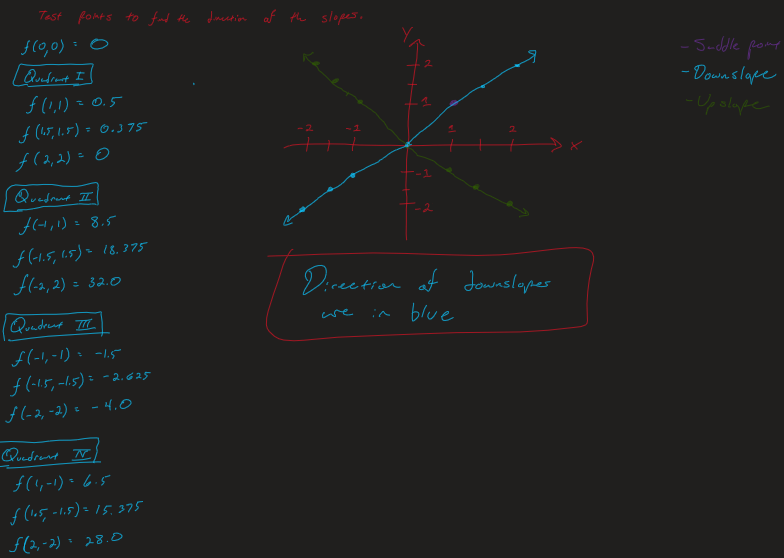 Test points to find the direction of the slopes.
f(0,0) = 0
Quadrant I
f(1,1) = 0.5
f(1.5,1.5) = 0.375
f(2,2) = 0
Quadrant II
f(-1,1) = 8.5
f(-1.5,1.5) = 18.375
f(-2,2) = 32.0
Quadrant III
f(-1,-1) = -1.5
f(-1.5,-1.5) = -2.625
f(-2,-2) = -4.0
Quadrant IV
f(1,-1) = 6.5
f(1.5,-1.5) = 15.375
f(2,-2) = 28.0
Y
2
1
-2 -1 1 2 X
-1
-2
Direction of downslopes
are in blue
- Saddle point
- Downslope
- Upslope